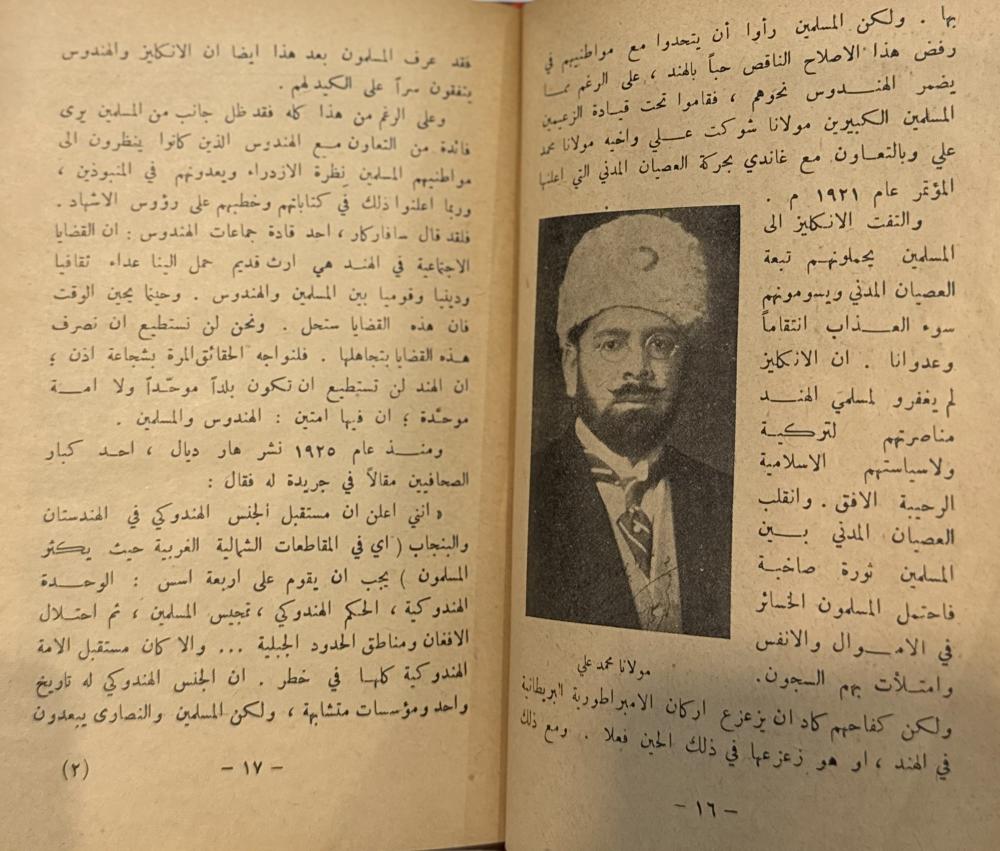 بها . ولكن المسلمين رأوا أن يتحدوا مع مواطنيهم في
رفض هذا الاصلاح الناقص حباً بالهند ، على الرغم مما
يضمر الهندوس نحوهم ، فقاموا تحت قيادة الزعيمين
المسلمين الكبيرين مولانا شوكت علي واخيه مولانا محمد
علي وبالتعاون مع غاندي بحركة العصيان المدني التي اعلنها
المؤتمر عام ١٩٢١ م .
والتفت الانكليز الى
المسلمين يحملونهم تبعة
العصيان المدني ويسومونهم
سوء العذاب انتقاماً
وعدوانا . ان الانكليز
لم يغفرو لمسلمي الهند
مناصرتهم لتركية
ولاسياستهم الاسلامية
الرحيبة الافق . وانقلب
العصيان المدني بين
المسلمين ثورة صاخبة
فاحتمل المسلمون الخسائر
في الاموال والانفس
وامتلأت بهم السجون.
مولانا محمد علي
ولكن كفاحهم كاد ان يزعزع اركان الامبراطورية البريطانية
في الهند ، او هو زعزعها في ذلك الحين فعلا . ومع ذلك
– ١٦ –
فقد عرف المسلمون بعد هذا ايضا ان الانكليز والهندوس
يتفقون سراً على الكيد لهم .
وعلى الرغم من هذا كله فقد ظل جانب من المسلمين يرى
فائدة من التعاون مع الهندوس الذين كانوا ينظرون الى
مواطنيهم المسلمين نظرة الازدراء ويعدونهم في المنبوذين ،
وربما اعلنوا ذلك في كتاباتهم وخطبهم على رؤوس الاشهاد .
فلقد قال سافاركار ، احد قادة جماعات الهندوس : ان القضايا
الاجتماعية في الهند هي ارث قديم حمل الينا عداء ثقافيا
ودينيا وقوميا بين المسلمين والهندوس . وحينما يحين الوقت
فان هذه القضايا ستحل . ونحن لن نستطيع ان نصرف
هذه القضايا بتجاهلها . فلنواجه الحقائق المرة بشجاعة اذن ؛
ان الهند لن تستطيع ان تكون بلداً موحّداً ولا امة
موحّدة ؛ ان فيها امتين : الهندوس والمسلمين .
ومنذ عام ١٩٢٥ نشر هار ديال ، احد كبار
الصحافيين مقالاً في جريدة له فقال :
« انني اعلن ان مستقبل الجنس الهندوكي في الهندستان
والبنجاب ( اي في المقاطعات الشمالية الغربية حيث يكثر
المسلمون ) يجب ان يقوم على اربعة اسس : الوحدة
الهندوكية ، الحكم الهندوكي ، تمجيس المسلمين ، ثم احتلال
الافغان ومناطق الحدود الجبلية ... والا كان مستقبل الامة
الهندوكية كلها في خطر . ان الجنس الهندوكي له تاريخ
واحد ومؤسسات متشابهة ، ولكن المسلمين والنصارى يبعدون
– ١٧ –
(٢)